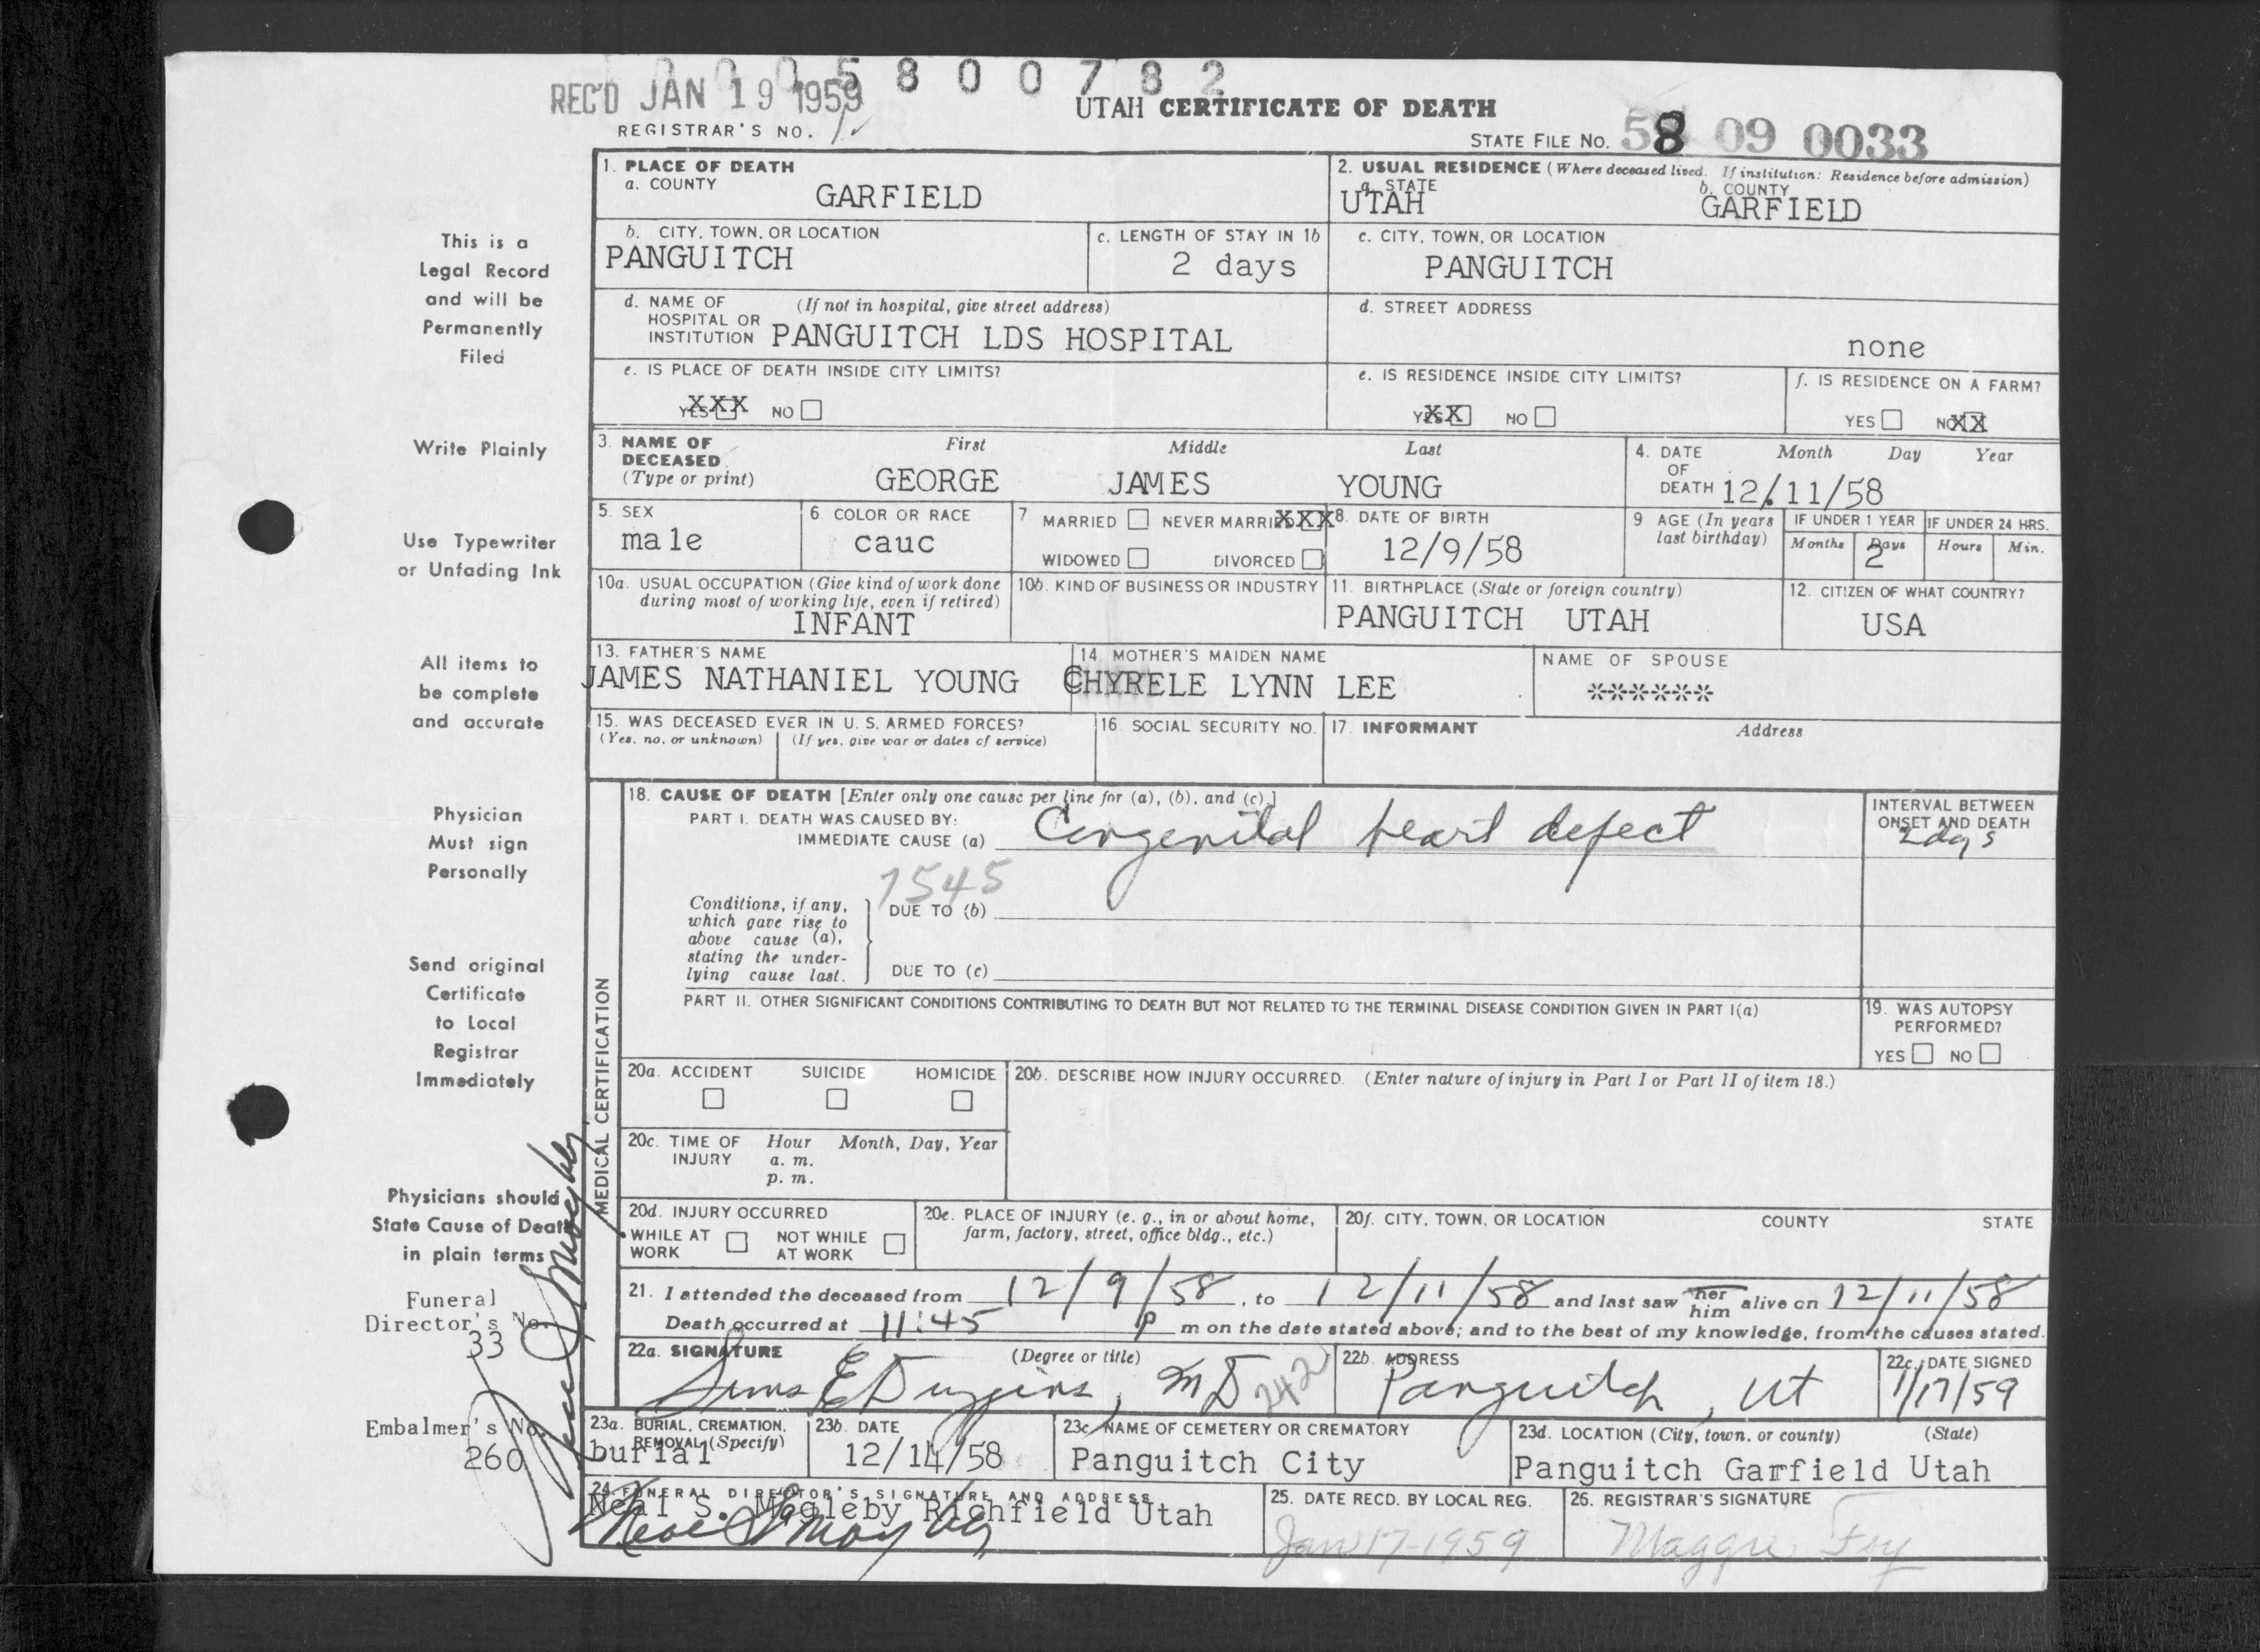 0005800782
REC'D JAN 19 1959
UTAH CERTIFICATE OF DEATH
REGISTRAR'S NO.
STATE FILE NO. 58 09 0033
This is a
Legal Record
and will be
Permanently
Filed
Write Plainly
Use Typewriter
or Unfading Ink
All items to
be complete
and accurate
Physician
Must sign
Personally
Send original
Certificate
to Local
Registrar
Immediately
Physicians should
State Cause of Death
in plain terms
Funeral
Director's No.
33
Embalmer's No.
260
1. PLACE OF DEATH
a. COUNTY
GARFIELD
2. USUAL RESIDENCE (Where deceased lived. If institution: Residence before admission)
a. STATE b. COUNTY
UTAH GARFIELD
b. CITY, TOWN, OR LOCATION
PANGUITCH
c. LENGTH OF STAY IN 1b
2 days
c. CITY, TOWN, OR LOCATION
PANGUITCH
d. NAME OF (If not in hospital, give street address)
HOSPITAL OR
INSTITUTION PANGUITCH LDS HOSPITAL
d. STREET ADDRESS
none
e. IS PLACE OF DEATH INSIDE CITY LIMITS?
YES XXX NO
e. IS RESIDENCE INSIDE CITY LIMITS?
YES XX NO
f. IS RESIDENCE ON A FARM?
YES NO XX
3. NAME OF First Middle Last
DECEASED
(Type or print) GEORGE JAMES YOUNG
4. DATE Month Day Year
OF
DEATH 12/11/58
5. SEX
male
6 COLOR OR RACE
cauc
7 MARRIED NEVER MARRIED XXX
WIDOWED DIVORCED
8. DATE OF BIRTH
12/9/58
9 AGE (In years
last birthday)
IF UNDER 1 YEAR IF UNDER 24 HRS.
Months Days Hours Min.
2
10a. USUAL OCCUPATION (Give kind of work done
during most of working life, even if retired)
INFANT
10b. KIND OF BUSINESS OR INDUSTRY
11. BIRTHPLACE (State or foreign country)
PANGUITCH UTAH
12. CITIZEN OF WHAT COUNTRY?
USA
13. FATHER'S NAME
JAMES NATHANIEL YOUNG
14. MOTHER'S MAIDEN NAME
CHYRELE LYNN LEE
NAME OF SPOUSE
******
15. WAS DECEASED EVER IN U. S. ARMED FORCES?
(Yes, no, or unknown) (If yes, give war or dates of service)
16. SOCIAL SECURITY NO.
17. INFORMANT Address
MEDICAL CERTIFICATION
18. CAUSE OF DEATH [Enter only one cause per line for (a), (b), and (c).]
PART I. DEATH WAS CAUSED BY:
IMMEDIATE CAUSE (a) Congenital heart defect
INTERVAL BETWEEN
ONSET AND DEATH
2 days
7545
Conditions, if any,
which gave rise to
above cause (a),
stating the under-
lying cause last.
DUE TO (b)
DUE TO (c)
PART II. OTHER SIGNIFICANT CONDITIONS CONTRIBUTING TO DEATH BUT NOT RELATED TO THE TERMINAL DISEASE CONDITION GIVEN IN PART I(a)
19. WAS AUTOPSY
PERFORMED?
YES NO
20a. ACCIDENT SUICIDE HOMICIDE
20b. DESCRIBE HOW INJURY OCCURRED. (Enter nature of injury in Part I or Part II of item 18.)
20c. TIME OF Hour Month, Day, Year
INJURY a. m.
p. m.
20d. INJURY OCCURRED
WHILE AT NOT WHILE
WORK AT WORK
20e. PLACE OF INJURY (e. g., in or about home,
farm, factory, street, office bldg., etc.)
20f. CITY, TOWN, OR LOCATION COUNTY STATE
21. I attended the deceased from 12/9/58, to 12/11/58 and last saw her him alive on 12/11/58
Death occurred at 11:45 p m on the date stated above; and to the best of my knowledge, from the causes stated.
22a. SIGNATURE (Degree or title)
Sims E Duggins, MD 242
22b. ADDRESS
Panguitch, Ut
22c. DATE SIGNED
1/17/59
23a. BURIAL, CREMATION,
REMOVAL (Specify)
burial
23b. DATE
12/14/58
23c NAME OF CEMETERY OR CREMATORY
Panguitch City
23d. LOCATION (City, town, or county) (State)
Panguitch Garfield Utah
24. FUNERAL DIRECTOR'S SIGNATURE AND ADDRESS
Neal S. Magleby Richfield Utah
Neal S Magleby
25. DATE RECD. BY LOCAL REG.
Jan 17-1959
26. REGISTRAR'S SIGNATURE
Maggie Foy
Neal S Magleby